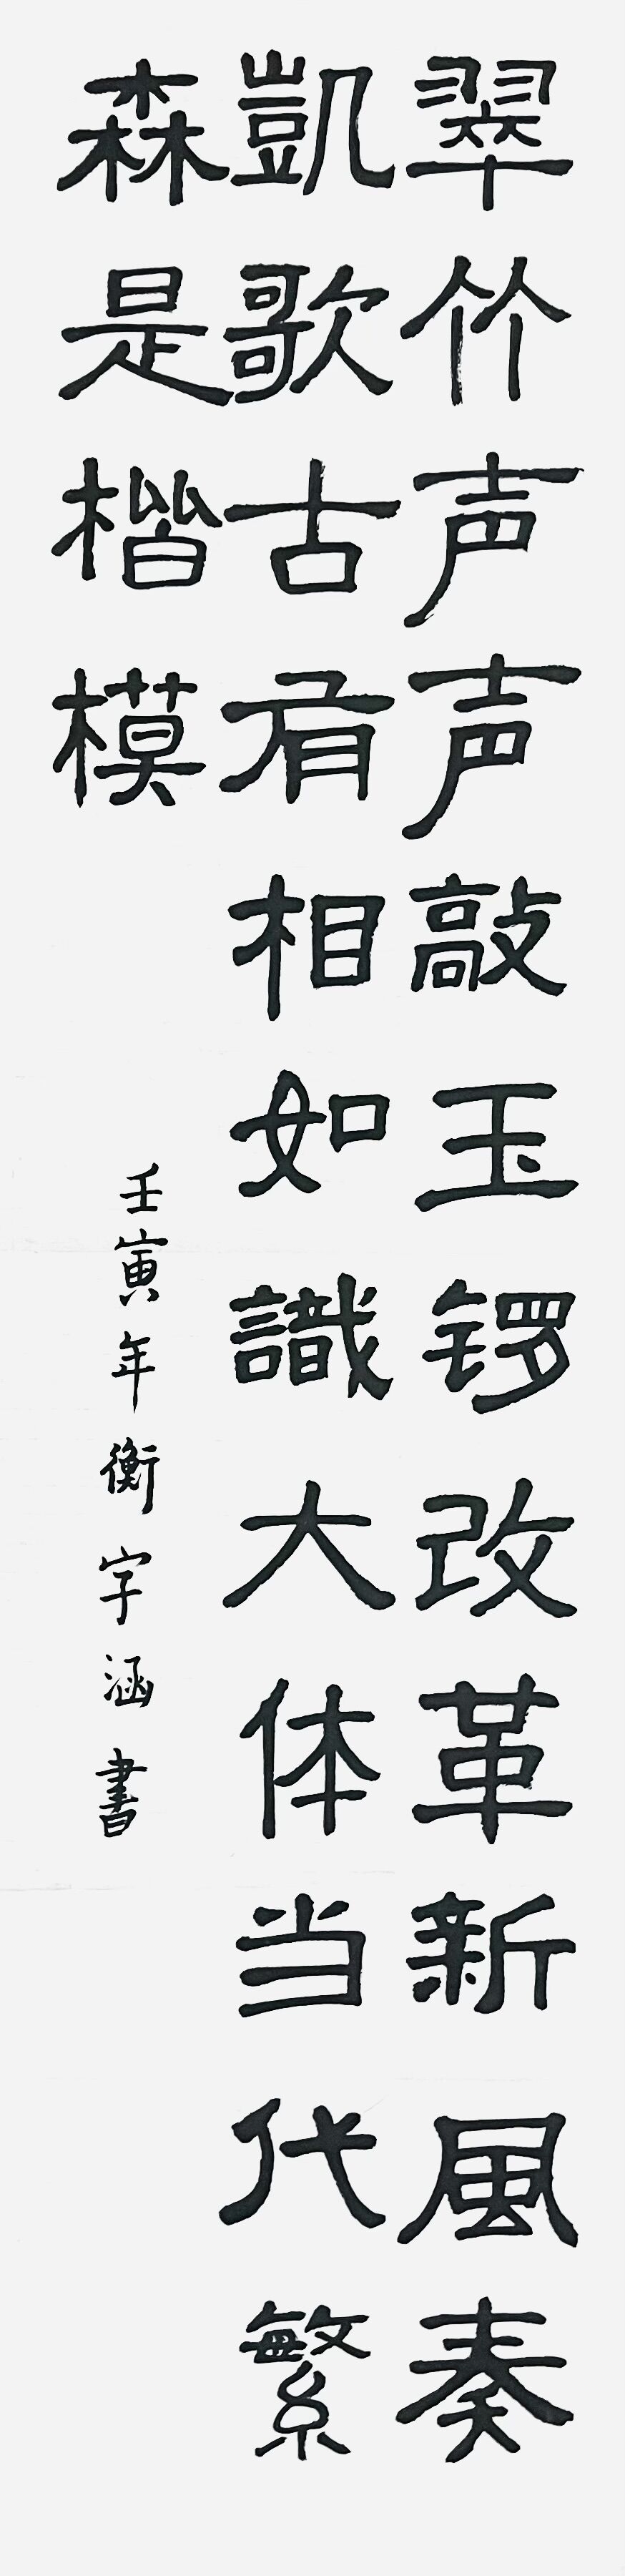 翠竹声声敲玉锣改革新風奏
凱歌古有相如識大体当代繁
森是楷模
壬寅年衡字涵書